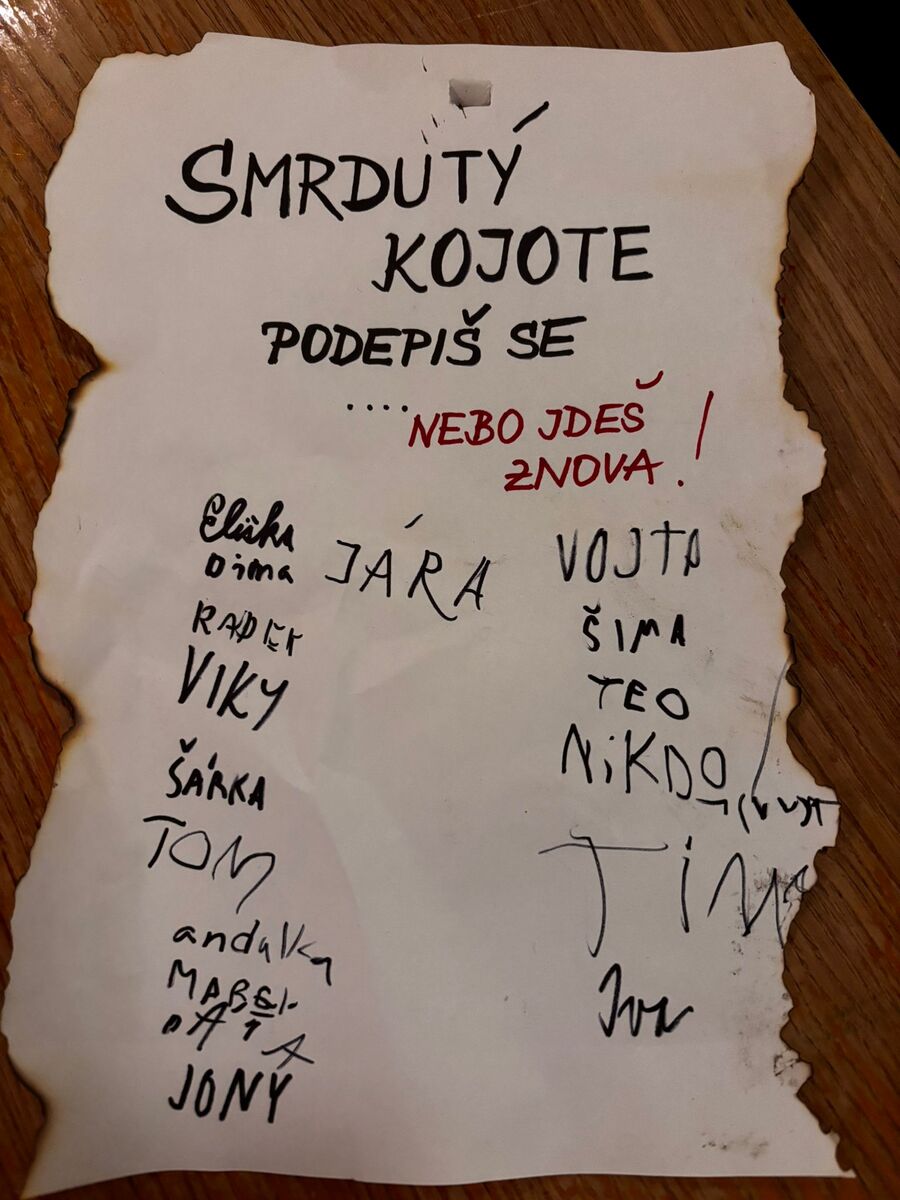 SMRDUTÝ
KOJOTE
PODEPIŠ SE
....NEBO JDEŠ
ZNOVA!
Eliška
Dima
JÁRA
RADEK
VIKY
ŠÁRKA
TOM
andulka
MABEL
JONÝ
VOJTA
ŠIMA
TEO
NiKDO
Iva